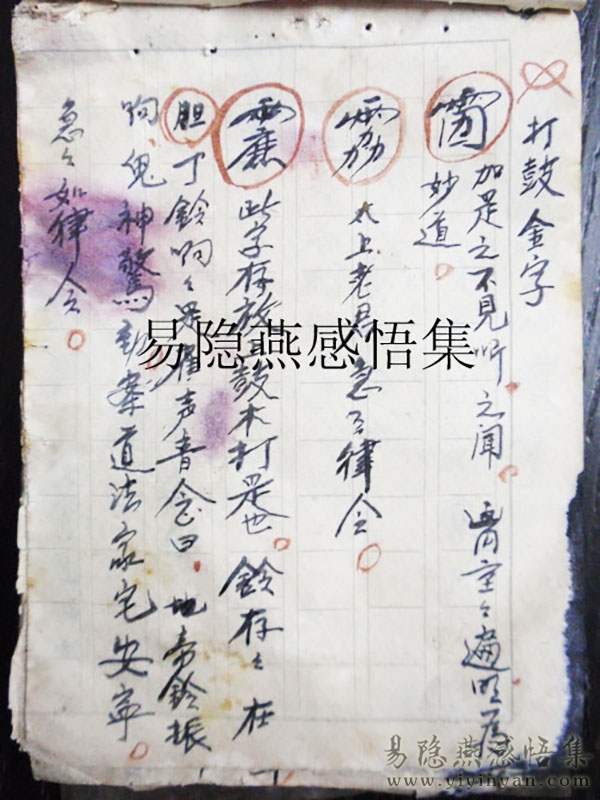 打鼓金字
加是之不見听之闻 室々遍明為
妙道
太上老君急々律令
此字存放鼓木打是也 鈴存々在
胆丁鈴响々是 声音念曰 地帝鈴振
响鬼神驚 案道法家宅安寧
急々如律令
易隐燕感悟集
易隐燕感悟集
www.yiyinyan.com